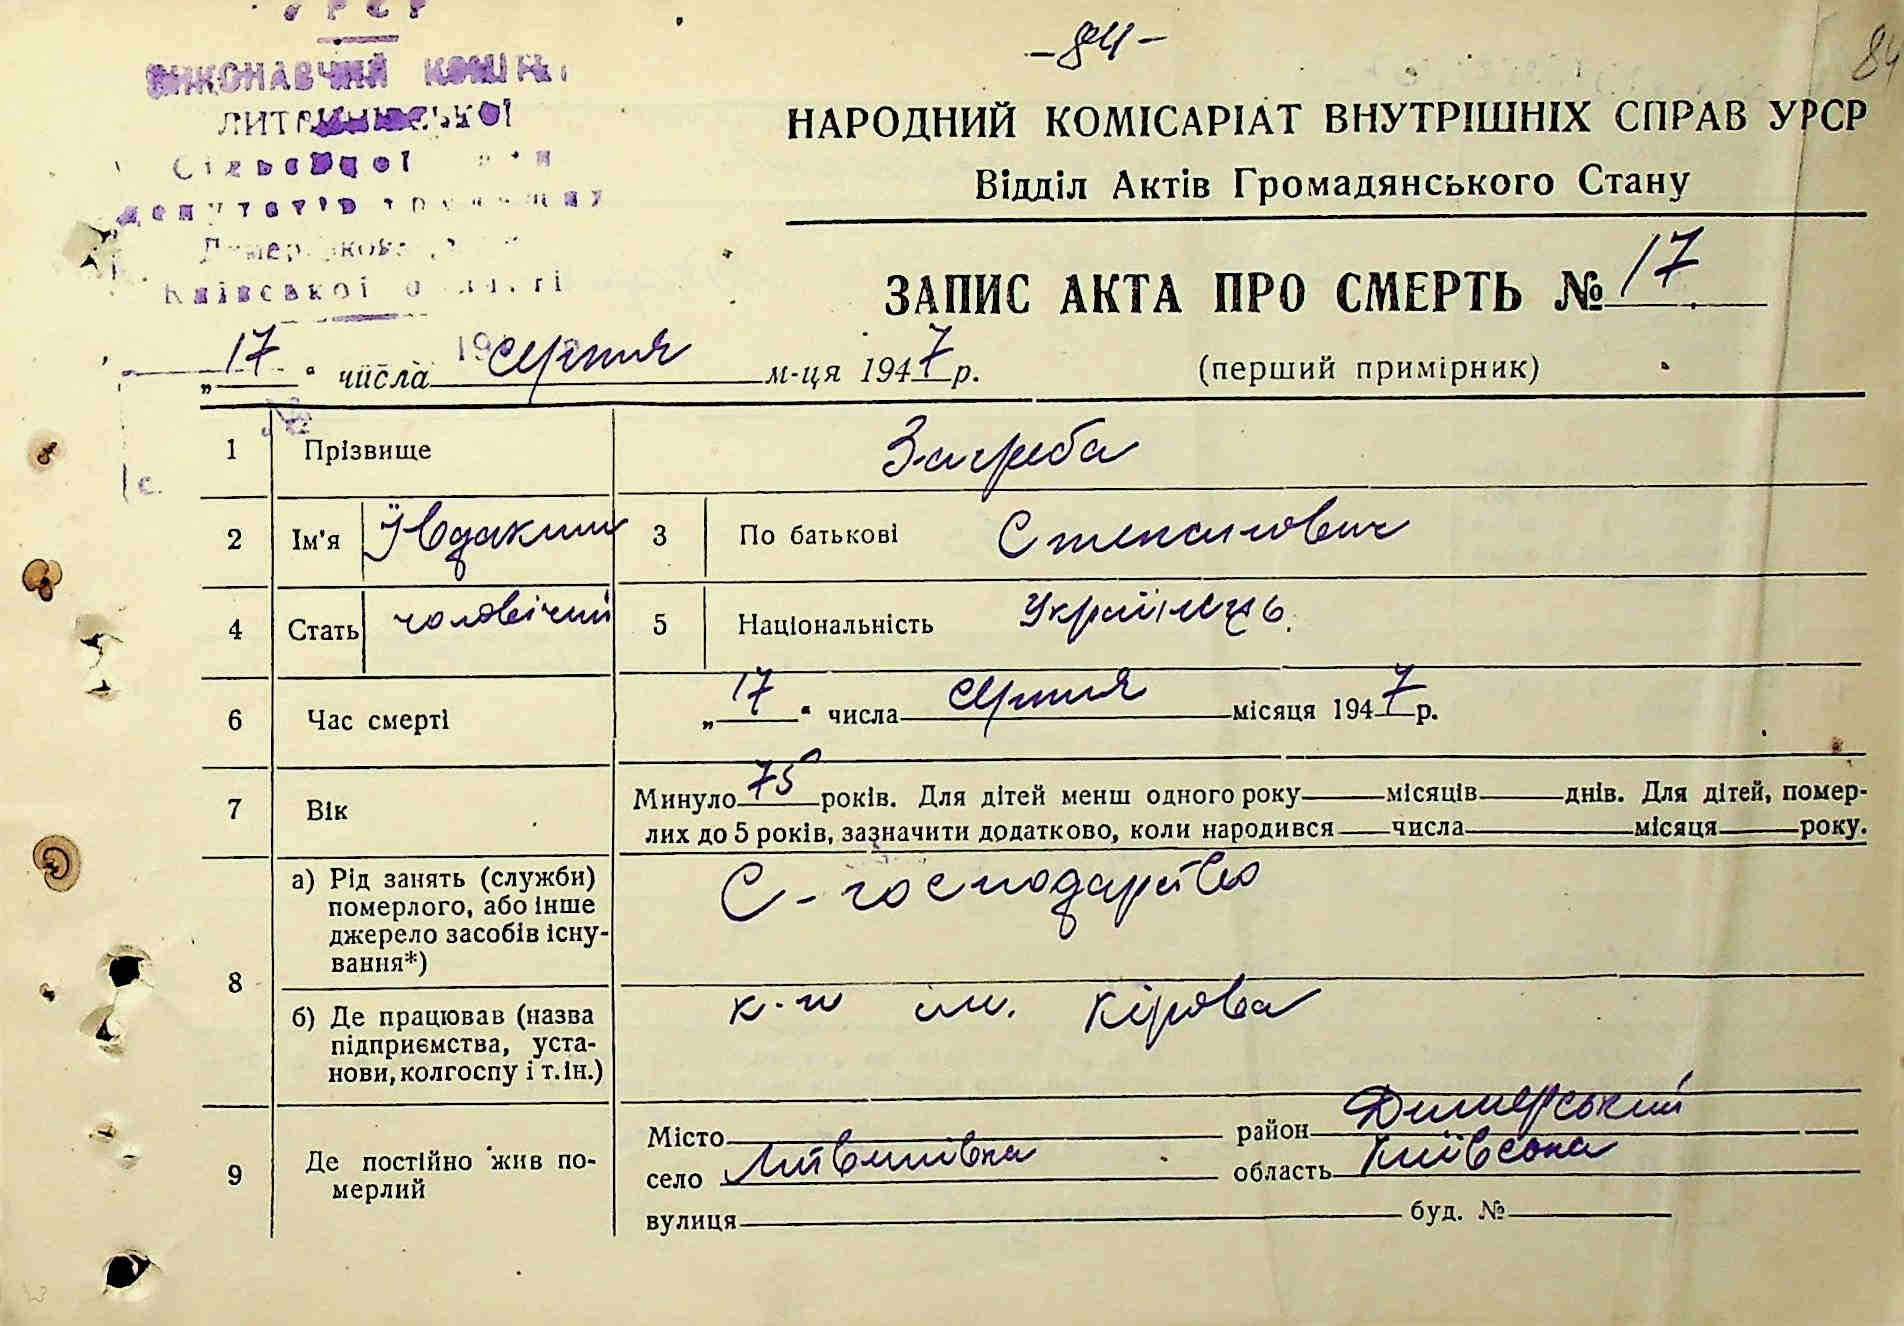 УРСР
ВИКОНАВЧИЙ КОМІТЕТ
ЛИТВИНІВСЬКОЇ
Сільської
депутатів трудящих
Димерського
Київської області
-84-
84
НАРОДНИЙ КОМІСАРІАТ ВНУТРІШНІХ СПРАВ УРСР
Відділ Актів Громадянського Стану
ЗАПИС АКТА ПРО СМЕРТЬ № 17
„17“ числа серпня м-ця 1947 р.
(перший примірник)
1 Прізвище Загреба
2 Ім'я Ївдоким 3 По батькові Степанович
4 Стать чоловічий 5 Національність Українець.
6 Час смерті „17“ числа серпня місяця 1947 р.
7 Вік Минуло 75 років. Для дітей менш одного року місяців днів. Для дітей, помер-
лих до 5 років, зазначити додатково, коли народився числа місяця року.
8 а) Рід занять (служби)
померлого, або інше
джерело засобів існу-
вання*)
С-господарство
б) Де працював (назва
підприємства, уста-
нови, колгоспу і т.ін.)
к-п ім. Кірова
9 Де постійно жив по-
мерлий
Місто район Димерський
село Литвинівка область Київська
вулиця буд. №